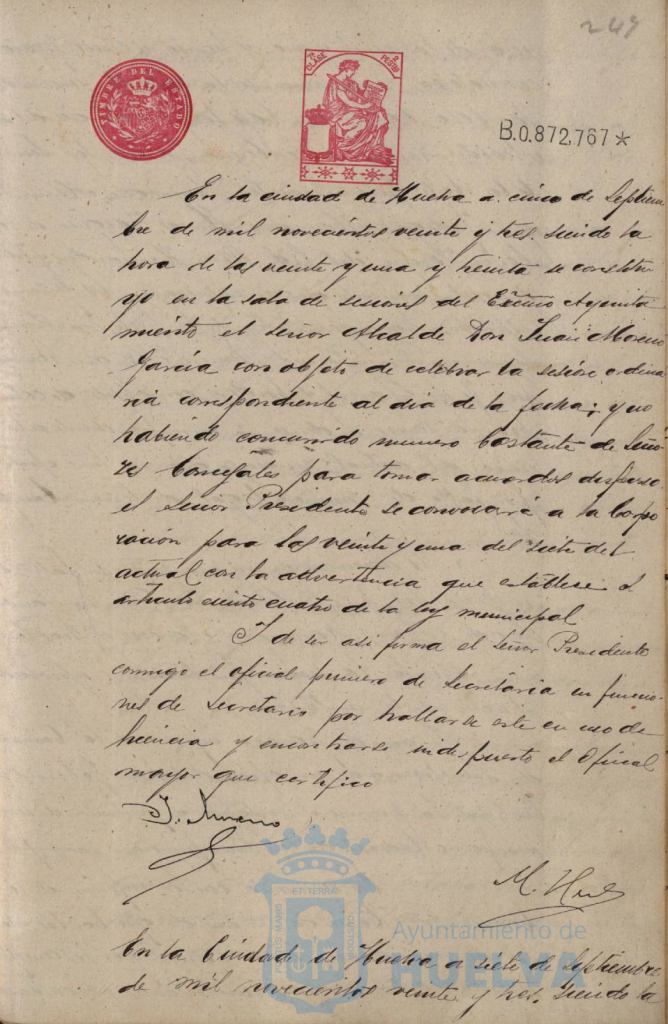 247
TIMBRE DEL ESTADO
7ª CLASE
B.0.872,767*
En la ciudad de Huelva a cinco de Septiem
bre de mil novecientos veinte y tres. siendo la
hora de las veinte y una y treinta se constitu
yo en la sala de sesiones del Excmo Ayunta
miento el Señor Alcalde Don Juan Moreno
García con objeto de celebrar la sesión ordina
ria correspondiente al dia de la fecha; y no
habiendo concurrido numero bastante de Seño
res Concejales para tomar acuerdos dispuso
el Señor Presidente se convocará a la Corpo
ración para las veinte y una del siete del
actual con la advertencia que establese el
articulo ciento cuatro de la ley municipal
Y de ser asi firma el Señor Presidente
conmigo el oficial primero de Secretaria en funcio-
nes de Secretario por hallarse este en uso de
licencia y encontrarse indispuesto el Oficial
mayor que certifico
J. Moreno
M.
Ayuntamiento de
HUELVA
En la Ciudad de Huelva a siete de Septiembre
de mil novecientos veinte y tres. siendo la